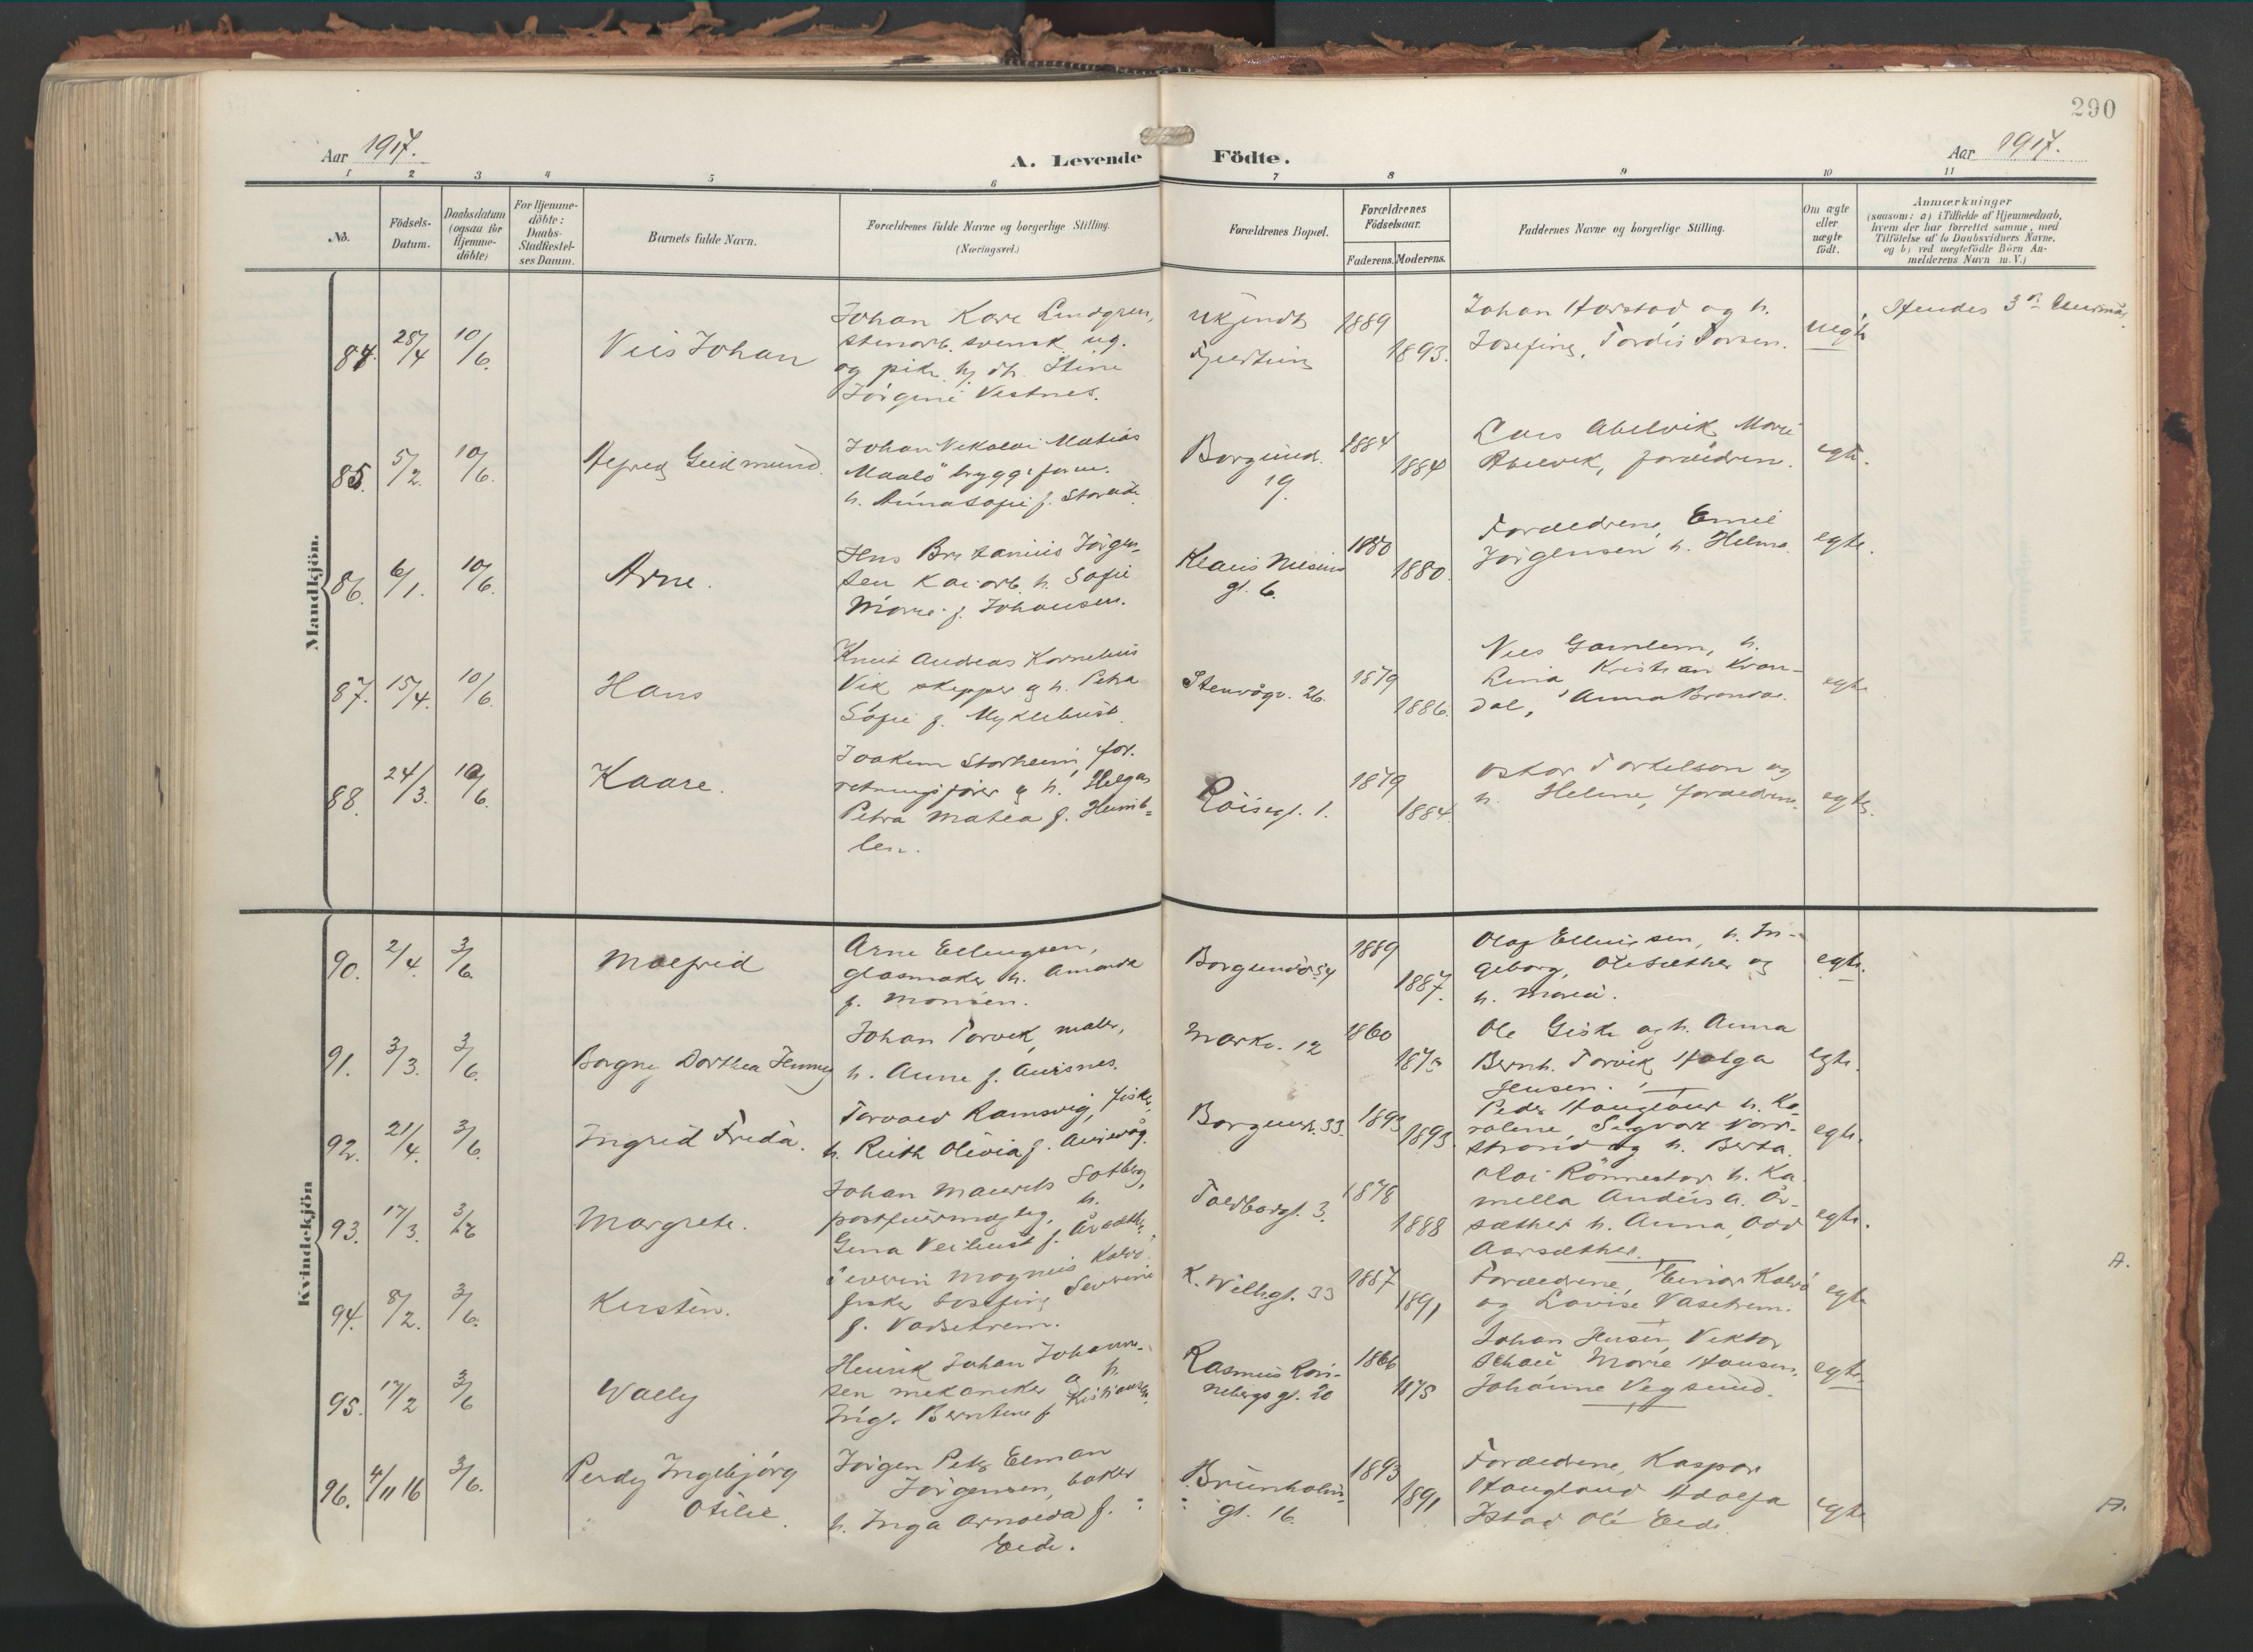 290
Aar 1917.
A. Levende Födte.
Aar 1917.
1 2 3 4 5 6 7 8 9 10 11
No.
Födsels-
Datum.
Daabsdatum
(ogsaa for
Hjemme-
döbte)
For Hjemme-
döbte:
Daabs-
Stadfæstel-
ses Datum.
Barnets fulde Navn.
Forældrenes fulde Navne og borgerlige Stilling.
(Næringsvei.)
Forældrenes Bopæl.
Forældrenes
Födselsaar.
Faderens. Moderens.
Faddernes Navne og borgerlige Stilling.
Om ægte
eller
uægte
födt.
Anmærkninger
(saasom: a) i Tilfælde af Hjemmedaab,
hvem der har forrettet samme, med
Tilföielse af to Daabsvidners Navne,
og b) ved uægtefödte Börn An-
melderens Navn m. V.)
Mandkjön.
84. 28/4 10/6. Nils Johan
Johan Karl Lindgren,
stenarb. svensk ug.
og pike Stine
Jörgine Vestnes.
Ukjendt
1889
1893.
Johan Harstad og h.
Josefine, Tordis Torsen.
uegte
Hendes 3die
85. 5/2. 10/6. Alfred Gudmund.
Johan Nikolai Matias
Maalö bryggeform.
h. Anna Sofie f. Storeide
Borgund.
19.
1884
1884
Lars Abelvik, Marie
Abelvik, forældren.
egte.
86. 6/1. 10/6. Arne.
Jens Jörgen-
sen Kaiarb. h. Sofie
Marie f. Johansen.
Klaus Nilsens
gt. 6.
1880
1880.
Forældrene, Emil
Jörgensen h. Helma.
egte.
87. 15/4. 10/6. Hans
Knut Andreas Kornelius
Vik skipper og h. Petra
Sofie f. Myklebust.
Stenvågv. 26.
1879
1886.
Nils Gamlem, h.
Lina Kristian Kvan-
dal, Anna Brandal.
egte
88. 24/3. 10/6. Kaare.
Joakim Storheim, for-
retningsförer og h. Helga
Petra Matea f. Humb-
len.
Röisegt. 1.
1879
1884.
Oskar Torkelson og
h. Helene, forældrene.
egte.
Kvindekjön
90. 2/4. 3/6. Malfrid
Arne Ellingsen,
glasmaker h. Amanda
f. Monsen.
Borgundv 54
1889
1887.
Olaf Ellingsen, h. In-
geborg, Ole Sæther og
h. Marie.
egte.
91. 3/3. 3/6. Borgny Dorthea Jenny
Johan Torvik, maler,
h. Anne f. Aursnes.
Markv. 12
1860
Ole Giske og h. Anna
Bernh. Torvik, Helga
Jensen.
egte.
92. 21/4. 3/6. Ingrid Frida.
Torvald Ramsvig, fisker,
h. Ruth Olivia f.
Borgundv. 33.
1893
1893.
Peder Haugland h. Ka-
roline Sigvart Nord-
strand og h. Berta.
egte.
93. 17/3. 3/6 Margrete.
Johan Maurits Solberg,
h.
Gina f.
Toldbodgt. 3.
1878
1888
Olai Rönnestad h. Ka-
mella Andeus A. År-
sæther h. Anna, Odd
Aarsæther.
egte.
94. 8/2. 3/6. Kirsten.
Severin Magnus Kalvö
fisker Josefine Severine
f. Vadsetrem.
K. Wilhgt. 33
1887
1891
Forældrene, Einar Kalvö
og Lovise Vasetrem.
egte
A.
95. 17/2 3/6 Wally
Henrik Johan Johann-
sen mekaniker og h.
Inga Berntine f. Kristiansen
Rasmus Rön-
nebergs gt. 20
1866
1875
Johan Jensen Viktor
Schau Marie Hansen,
Johanne Vegsund.
egte.
96. 4/11 16 3/6. Perdy Ingebjörg
Otilie.
Jörgen Peter Elman
Jörgensen, baker
h. Inga Arnolda f.
Eide.
Brunholm-
gt. 16.
1893
1891
Forældrene, Kaspar
Haugland Adolfa
Istad Ole Eide.
egte
A.